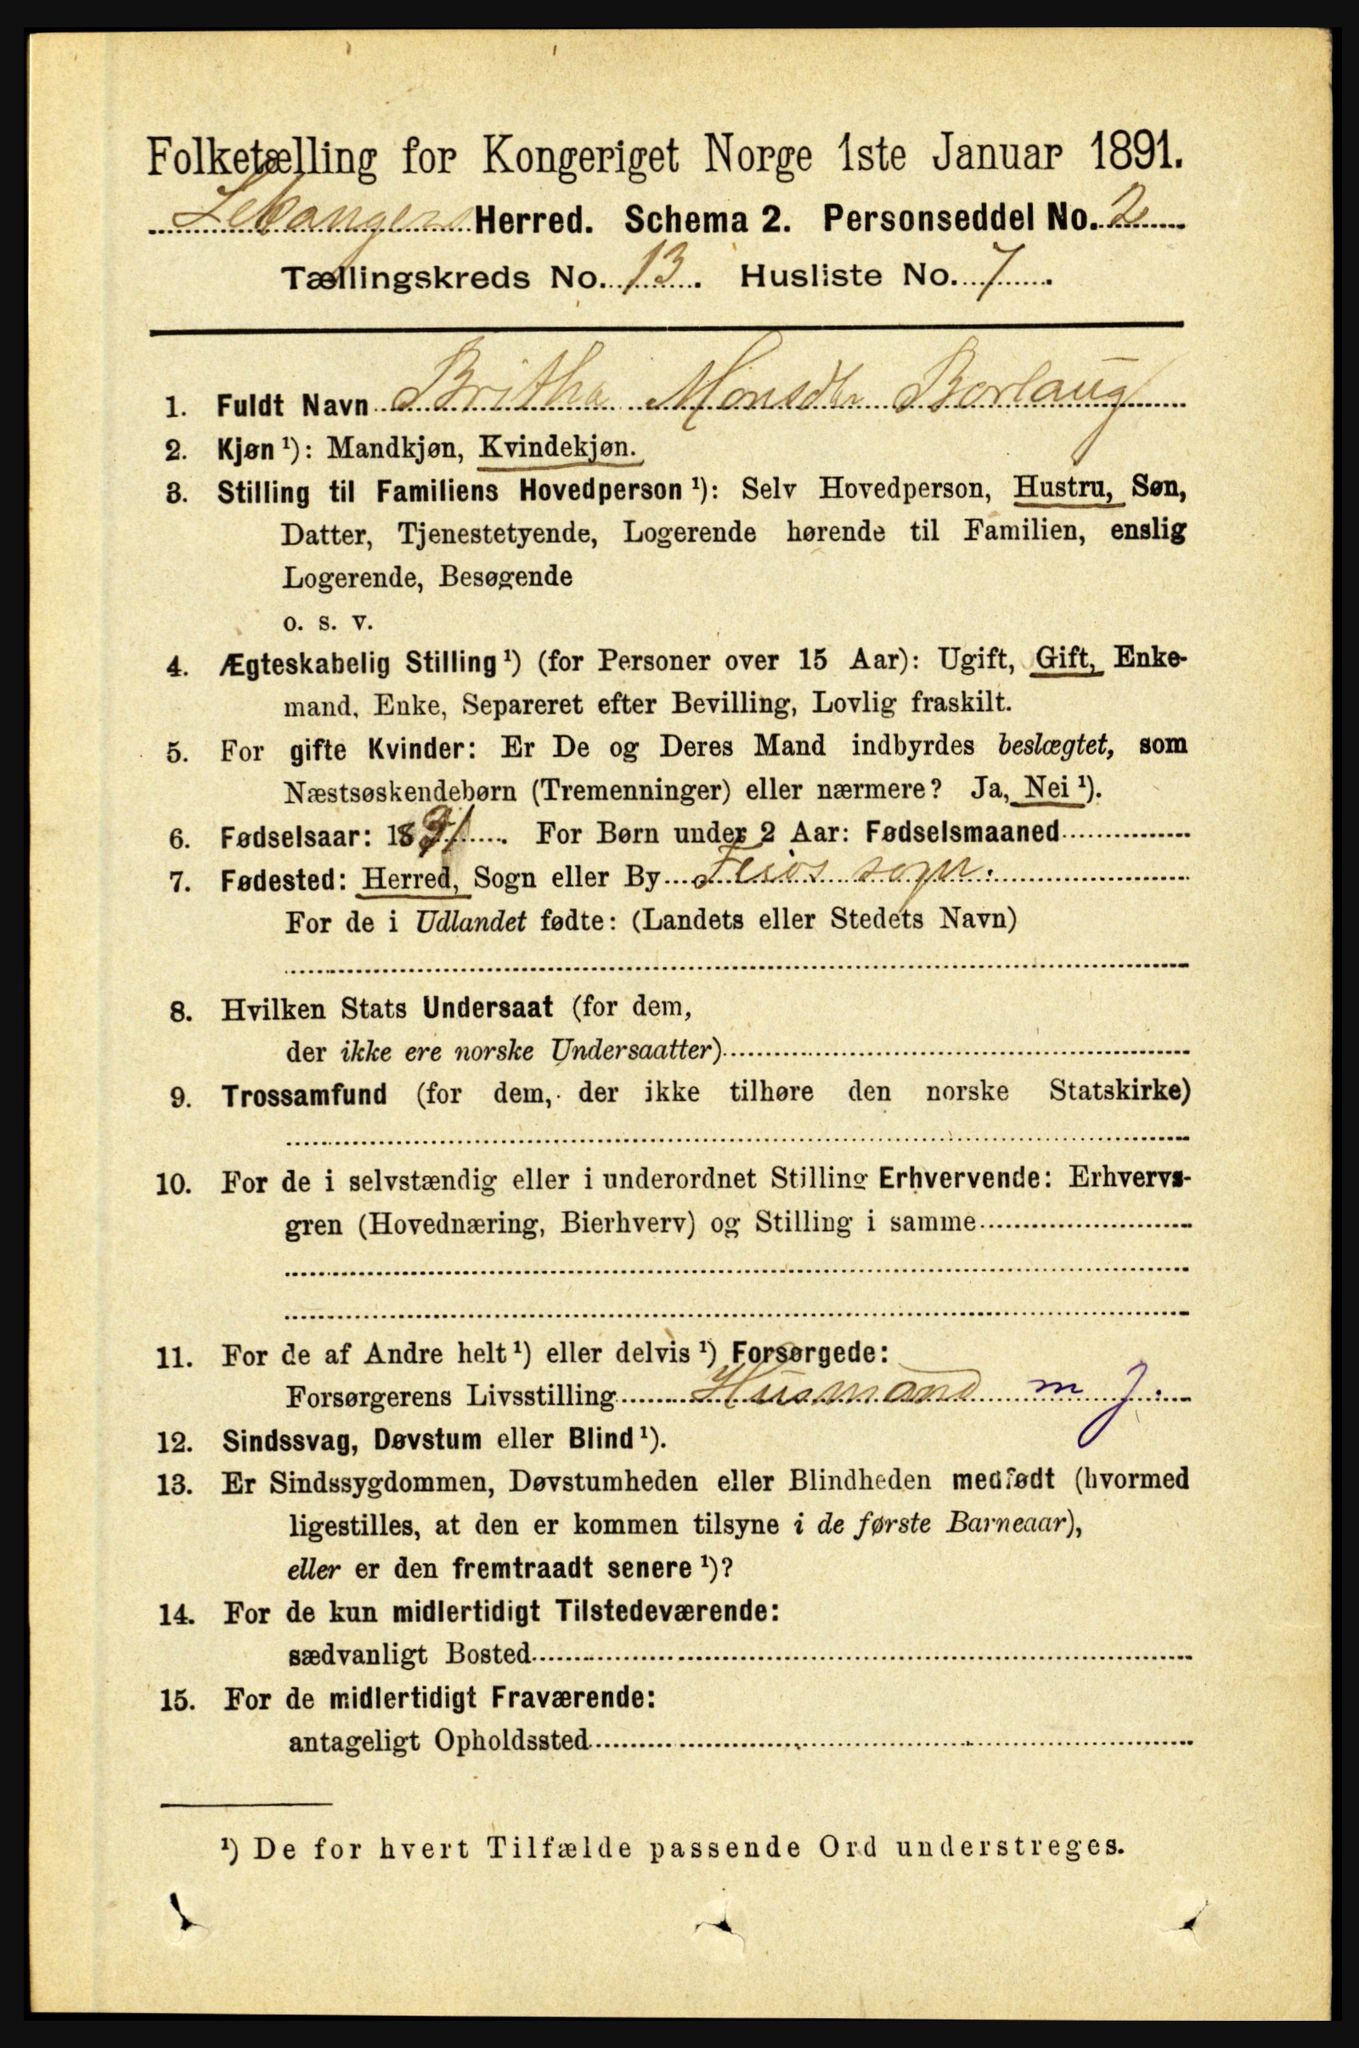 Folketælling for Kongeriget Norge 1ste Januar 1891.
Lekanger Herred. Schema 2. Personseddel No. 2
Tællingskreds No. 13. Husliste No. 7.
1. Fuldt Navn Britha Monsdtr Borlaug
2. Kjøn ¹): Mandkjøn, Kvindekjøn.
3. Stilling til Familiens Hovedperson ¹): Selv Hovedperson, Hustru, Søn,
Datter, Tjenestetyende, Logerende hørende til Familien, enslig
Logerende, Besøgende
o. s. v.
4. Ægteskabelig Stilling ¹) (for Personer over 15 Aar): Ugift, Gift, Enke-
mand, Enke, Separeret efter Bevilling, Lovlig fraskilt.
5. For gifte Kvinder: Er De og Deres Mand indbyrdes beslægtet, som
Næstsøskendebørn (Tremenninger) eller nærmere? Ja, Nei ¹).
6. Fødselsaar: 18 . For Børn under 2 Aar: Fødselsmaaned
7. Fødested: Herred, Sogn eller By Feios sogn.
For de i Udlandet fødte: (Landets eller Stedets Navn)
8. Hvilken Stats Undersaat (for dem,
der ikke ere norske Undersaatter)
9. Trossamfund (for dem, der ikke tilhøre den norske Statskirke)
10. For de i selvstændig eller i underordnet Stilling Erhvervende: Erhvervs-
gren (Hovednæring, Bierhverv) og Stilling i samme
11. For de af Andre helt ¹) eller delvis ¹) Forsørgede:
Forsørgerens Livsstilling Husmand m j.
12. Sindssvag, Døvstum eller Blind ¹).
13. Er Sindssygdommen, Døvstumheden eller Blindheden medfødt (hvormed
ligestilles, at den er kommen tilsyne i de første Barneaar),
eller er den fremtraadt senere ¹)?
14. For de kun midlertidigt Tilstedeværende:
sædvanligt Bosted
15. For de midlertidigt Fraværende:
antageligt Opholdssted
¹) De for hvert Tilfælde passende Ord understreges.